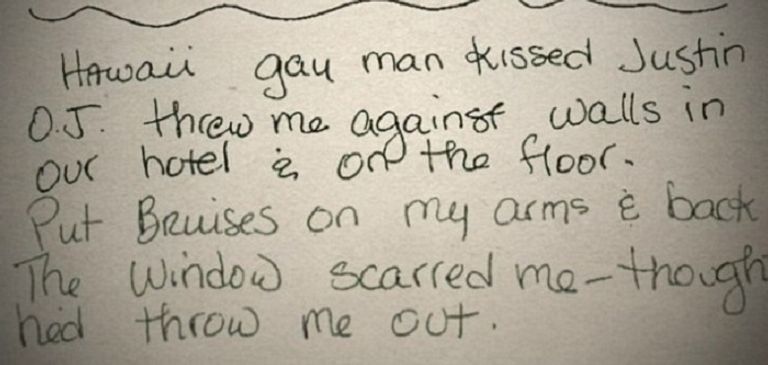 Hawaii gay man kissed Justin
O.J. threw me against walls in
our hotel & on the floor.
Put Bruises on my arms & back
The window scarred me - though
hed throw me out.